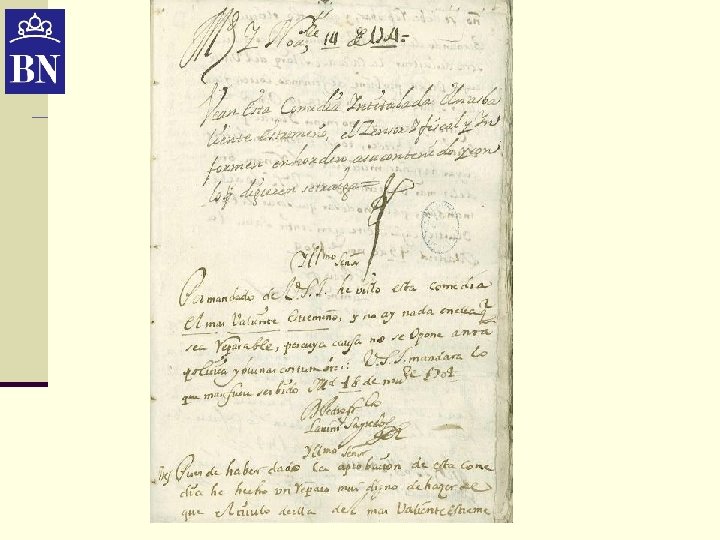 BN
Md y Nobre 14 de
Vean esta Comedia Intitulada El mas ba
liente estremeño, el Zensor y fiscal y In
formen en horden a su contenido y con
lo q dijeren se traiga=
Yllmo Señor
Por mandado de V.S.I. he visto esta comedia
El mas Valiente Estremeño, y no ay nada en ella q
sea reparable, por cuya causa no se opone a nra
politica y buenas costumbres: V.S.I. mandara lo
que mas fuere serbido Md 18 de
Lanini Sagredo
Yllmo Señor
Despues de haber dado la aprobacion de esta come
dia he hecho un reparo mui digno de hazer de
que el titulo della del mas Valiente Estreme